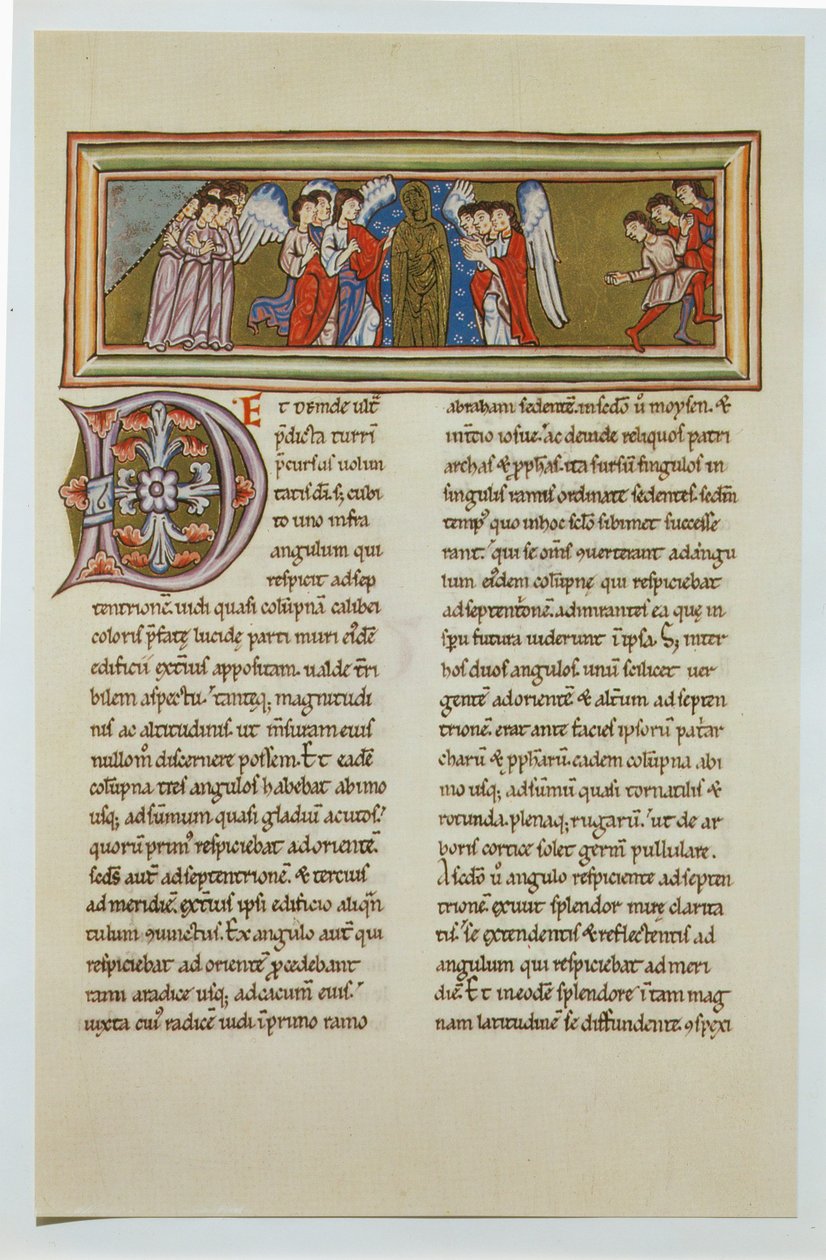 Et deinde ult̄
p̄dicta turrī
p̄cursus uolun
tatis dī. s; cubi
to uno infra
angulum qui
respicit ad sep
tentrionē. uidi quasi colūpnā calibei
coloris p̄fatę lucidę parti muri eiꝰdē
edificii extiꝰ appositam. ualde tr̄ri
bilem aspectu. tanteq; magnitudi
nis ac altitudinis. ut m̄suram eius
nullom̊ discernere possem. Et eadē
colūpna tres angulos habebat ab imo
usq; ad sūmum quasi gladiū acutos.
quorū primꝰ respiciebat ad orientē.
sed̄s aut̄ ad septentrionē. & tercius
ad meridiē. extiꝰ ipsi edificio aliqn̄
tulum ꝯiunctus. Ex angulo aut̄ qui
respiciebat ad orientē ꝓcedebant
rami a radice usq; ad cacumē eius.
iuxta cuiꝰ radicē uidi ī primo ramo
abraham sedentē. in sed̄o ů moysen. &
in t̄cio iosue. ac deinde reliquos patri
archas & ꝓph̄as. ita sursū singulos in
singulis ramis ordinate sedentes. sed̄m
tempꝰ quo in hoc sc̄lo sibimet successe
rant. qui se om̄s ꝯuerterant ad angu
lum eiꝰdem colūpnę qui respiciebat
ad septentr̓onē. admirantes ea quę in
sp̄u futura uiderunt ī ipsa. S; inter
hos duos angulos. unū scilicet uer
gentē ad orientē & alt̄um ad septen
trionē. erat ante facies ipsorū patar
charū & ꝓph̄arū. eadem colūpna ab i
mo usq; ad sūmū quasi tornatilis &
rotunda. plenaq; rugarū. ut de ar
boris cortice solet germ̄ pullulare.
A sed̄o ů angulo respiciente ad septen
trionē. exiuit splendor mirę clarita
tis. se extendentis & reflectentis ad
angulum qui respiciebat ad meri
diē. Et in eodē splendore ī tam mag
nam latitudinē se diffundente. ꝯspexi